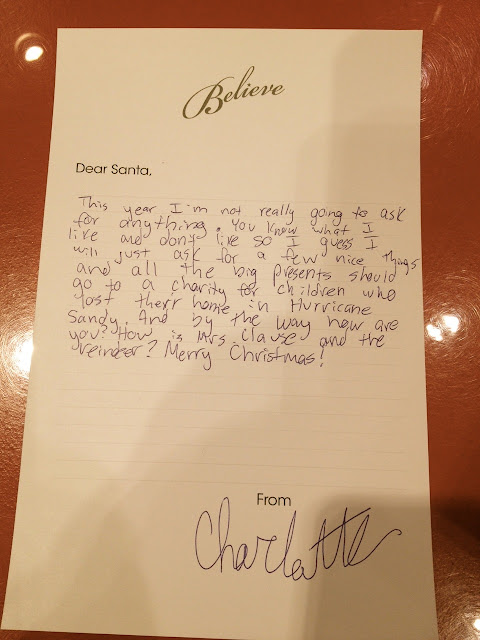 Believe
Dear Santa,
This year I'm not really going to ask
for anything. You know what I
like and don't like so I guess I
will just ask for a few nice things
and all the big presents should
go to a charity for children who
lost their home in Hurricane
Sandy. And by the way how are
you? How is Mrs. Clause and the
reindeer? Merry Christmas!
From
Charlotte